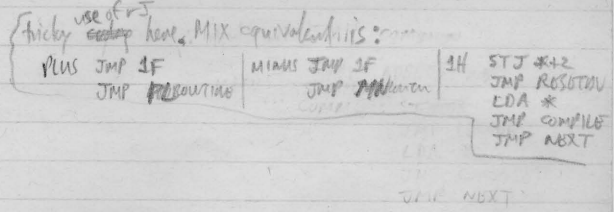 tricky use of rJ here, MIX equivalent is:
PLUS JMP 1F
JMP PLROUTINE
MINUS JMP 1F
JMP
1H STJ *+2
JMP
LDA *
JMP COMPILE
JMP NEXT
JMP NEXT